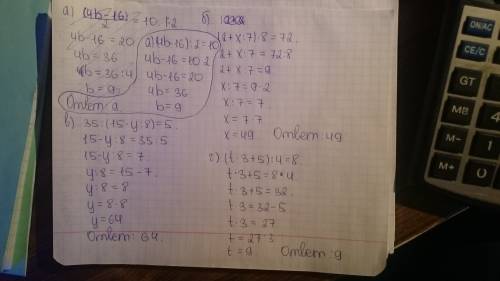 а) (4b-16)/2 = 10. |·2
4b-16 = 20
4b = 36
b = 36:4
b = 9
Ответ: 9
а) (4b-16):2=10
4b-16=10·2
4b-16=20
4b=36
b=9
б)
(2+x:7)·8=72.
2+x:7=72:8
2+x:7=9
x:7=9-2
x:7=7
x=7·7
x=49 Ответ: 49
в) 35:(15-y:8)=5.
15-y:8=35:5
15-y:8=7
y:8=15-7.
y:8=8
y=8·8
y=64
Ответ: 64.
г) (t·3+5):4=8.
t·3+5=8*4
t·3+5=32.
t·3=32-5
t·3=27
t=27:3
t=9 Ответ: 9
GT
MC
M-
M+
CE/C
4
1
0